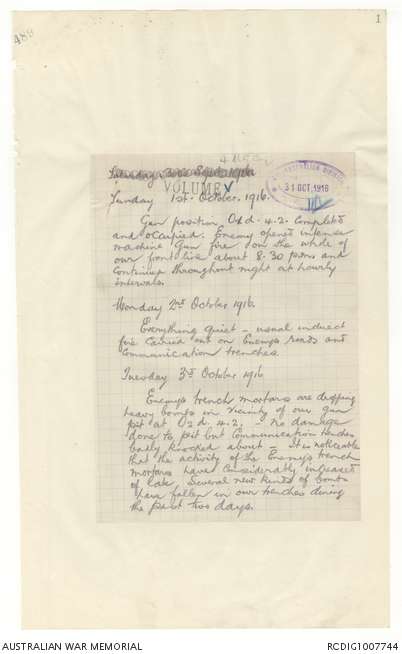 1
488
Saturday 30th Sept 1916
VOLUME V
31 OCT. 1916
Sunday 1st October 1916.
Gun position O2d.4.2. Completed
and occupied. Enemy opened intense
machine Gun fire on the whole of
our front line about 8.30 p.m. and
continued throughout night at hourly
intervals.
Monday 2nd October 1916.
Everything quiet – usual indirect
fire carried out on Enemys roads and
Communication trenches.
Tuesday 3rd October 1916
Enemy's trench mortars are dropping
heavy bombs in vicinity of our gun
pit at O2d.4.2. – No damage
done to pit but Communication trenches
badly knocked about – It is noticeable
that the activity of the Enemy's trench
mortars have considerably increased
of late, several new kinds of bombs
have fallen in our trenches during
the past two days.
AUSTRALIAN WAR MEMORIAL
RCDIG1007744